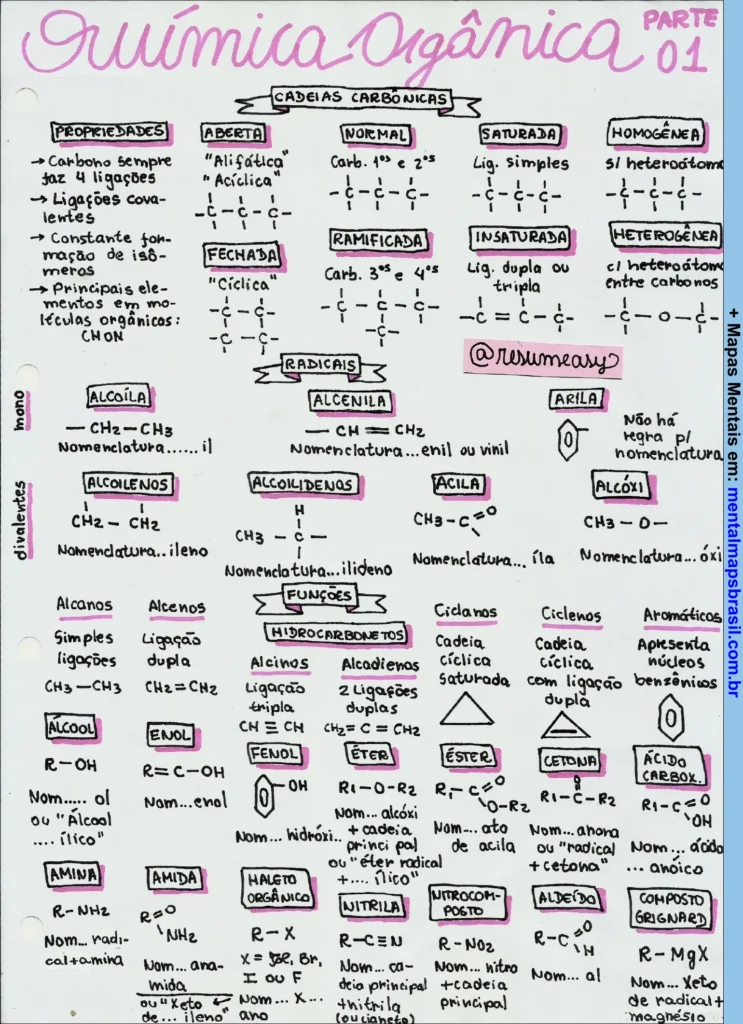 Química Orgânica PARTE 01
CADEIAS CARBÔNICAS
PROPRIEDADES
→ Carbono sempre
faz 4 ligações
→ Ligações cova-
lentes
→ Constante for-
mação de isô-
meros
→ Principais ele-
mentos em mo-
léculas orgânicas:
CHON
ABERTA
"Alifática"
"Acíclica"
-C-C-C-
FECHADA
"Cíclica"
-C-C-
-C-C-
NORMAL
Carb. 1ºs e 2ºs
-C-C-C-
RAMIFICADA
Carb. 3ºs e 4ºs
-C-C-C-
-C-
SATURADA
Lig. simples
-C-C-C-
INSATURADA
Lig. dupla ou
tripla
-C=C-C-
HOMOGÊNEA
s/ heteroátomo
-C-C-C-
HETEROGÊNEA
c/ heteroátomo
entre carbonos
-C-O-C-
@resumeasy
RADICAIS
mono
ALCOÍLA
-CH2-CH3
Nomenclatura......il
ALCENILA
-CH=CH2
Nomenclatura...enil ou vinil
ARILA
Não há
regra p/
nomenclatura
divalentes
ALCOILENOS
CH2-CH2
Nomenclatura..ileno
ALCOILIDENOS
H
CH3-C-
Nomenclatura...ilideno
ACILA
CH3-C=O
Nomenclatura... íla
ALCÓXI
CH3-O-
Nomenclatura...óxi
FUNÇÕES
HIDROCARBONETOS
Alcanos
Simples
ligações
CH3-CH3
Alcenos
Ligação
dupla
CH2=CH2
Alcinos
Ligação
tripla
CH≡CH
Alcadienos
2 Ligações
duplas
CH2=C=CH2
Ciclanos
Cadeia
cíclica
saturada
Ciclenos
Cadeia
cíclica
com ligação
dupla
Aromáticos
Apresenta
núcleos
benzênicos
ÁLCOOL
R-OH
Nom..... ol
ou "Álcool
.... ílico"
ENOL
R=C-OH
Nom...enol
FENOL
-OH
Nom... hidróxi..
ÉTER
R1-O-R2
Nom... alcóxi
+ cadeia
principal
ou "éter radical
+.... ílico"
ÉSTER
R1-C=O
O-R2
Nom...ato
de acila
CETONA
O
R1-C-R2
Nom...anona
ou "radical
+cetona"
ÁCIDO
CARBOX.
R1-C=O
OH
Nom... ácido
... anóico
AMINA
R-NH2
Nom... radi-
cal+amina
AMIDA
R=O
NH2
Nom... ana-
mida
ou "Xeto
de... ileno"
HALETO
ORGÂNICO
R-X
Br,
I ou F
Nom... X...
ano
NITRILA
R-C≡N
Nom... ca-
deia principal
+nitrila
(ou cianeto)
NITROCOM-
POSTO
R-NO2
Nom... nitro
+cadeia
principal
ALDEÍDO
R-C=O
H
Nom... al
COMPOSTO
GRIGNARD
R-MgX
Nom... Xeto
de radical+
magnésio
+ Mapas Mentais em: mentalmapsbrasil.com.br